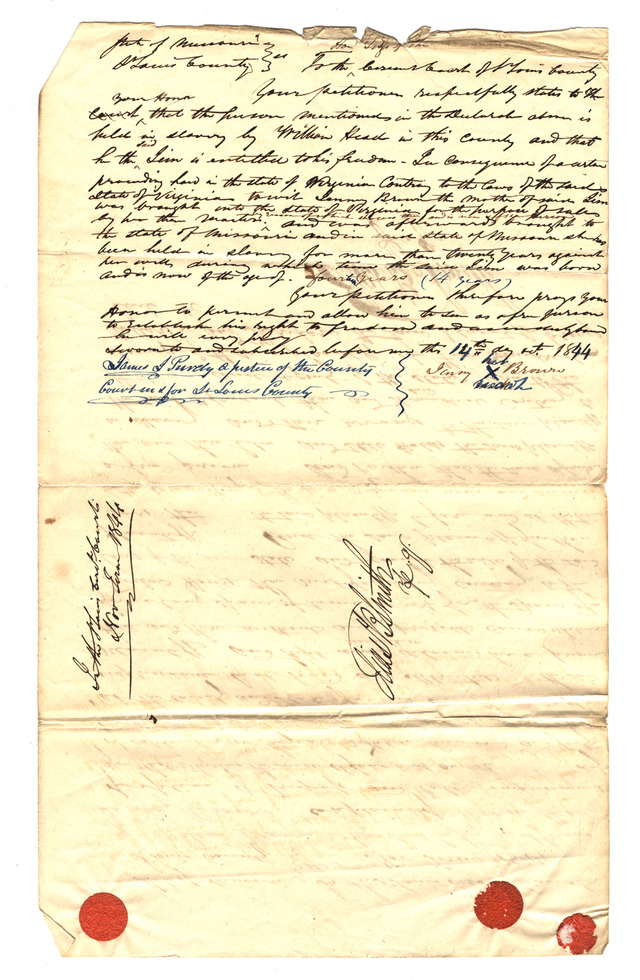 State of Missouri
St Louis County } ss
Hon Judge of the
To the Circuit Court of St Louis County
Your petitioner respectfully states to the
Court your Honor, that the person mentioned in the Declarat above is
held in slavery by William Head in this county and that
he the sd Sim is entitled to his freedom. In consequence of a certain
proceeding had in the state of Virginia Contrary to the laws of the said
State of Virginia to wit Jenny Brown the mother of said Sim
was brought into the state of Virginia for the purpose of sales
by her the master and was afterwards brought to
the state of Missouri and in said State of Missouri she has
been held in slavery for more than twenty years against
her will during which time the said Sim was born
and is now of the age of fourteen years (14 years)
Your petitioner therefore prays your
Honor to permit and allow him to sue as a free person
to establish his right to freedom and as in duty bound
he will ever pray
Sworn to and subscribed before me this 14th day oct. 1844
James S Purdy a justice of the County
Court in & for St Louis County
her
Jenny X Brown
mark
In the St Louis Circt Court
Nov Term 1844
Smith